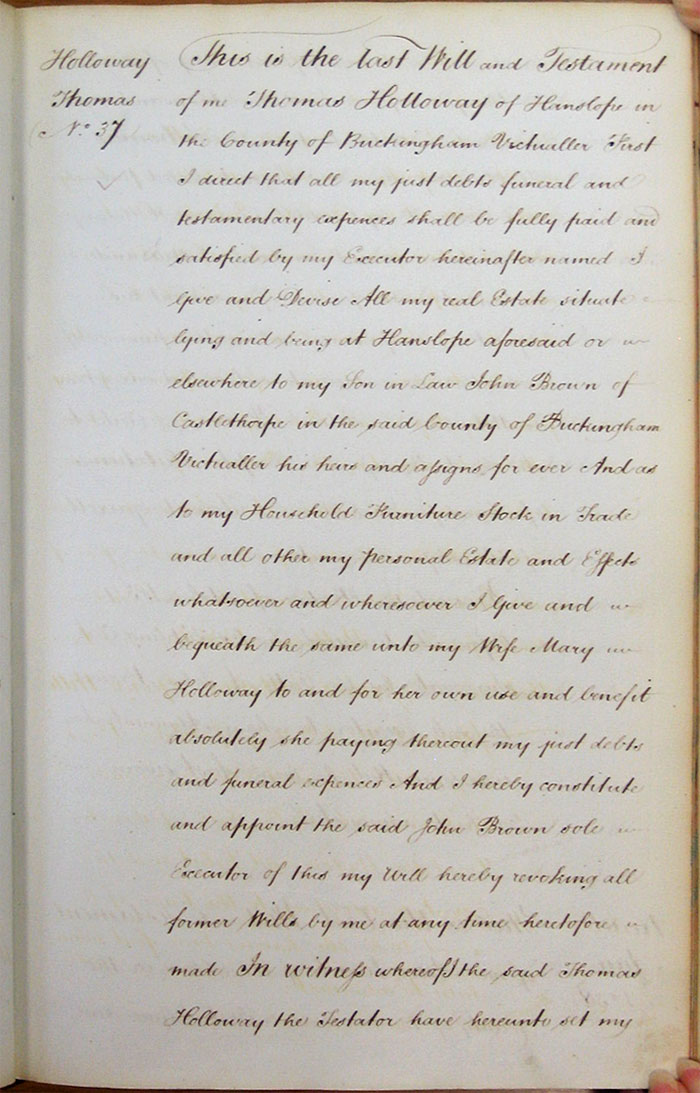 Holloway
Thomas
No. 37
This is the last Will and Testament
of me Thomas Holloway of Hanslope in
the County of Buckingham Victualler First
I direct that all my just debts funeral and
testamentary expences shall be fully paid and
satisfied by my Executor hereinafter named I
Give and Devise All my real Estate situate
lying and being at Hanslope aforesaid or
elsewhere to my Son in Law John Brown of
Castlethorpe in the said County of Buckingham
Victualler his heirs and assigns for ever And as
to my Household Furniture Stock in Trade
and all other my personal Estate and Effects
whatsoever and wheresoever I Give and
bequeath the same unto my Wife Mary
Holloway to and for her own use and benefit
absolutely she paying thereout my just debts
and funeral expences And I hereby constitute
and appoint the said John Brown sole
Executor of this my Will hereby revoking all
former Wills by me at any time heretofore
made In witness whereof I the said Thomas
Holloway the Testator have hereunto set my